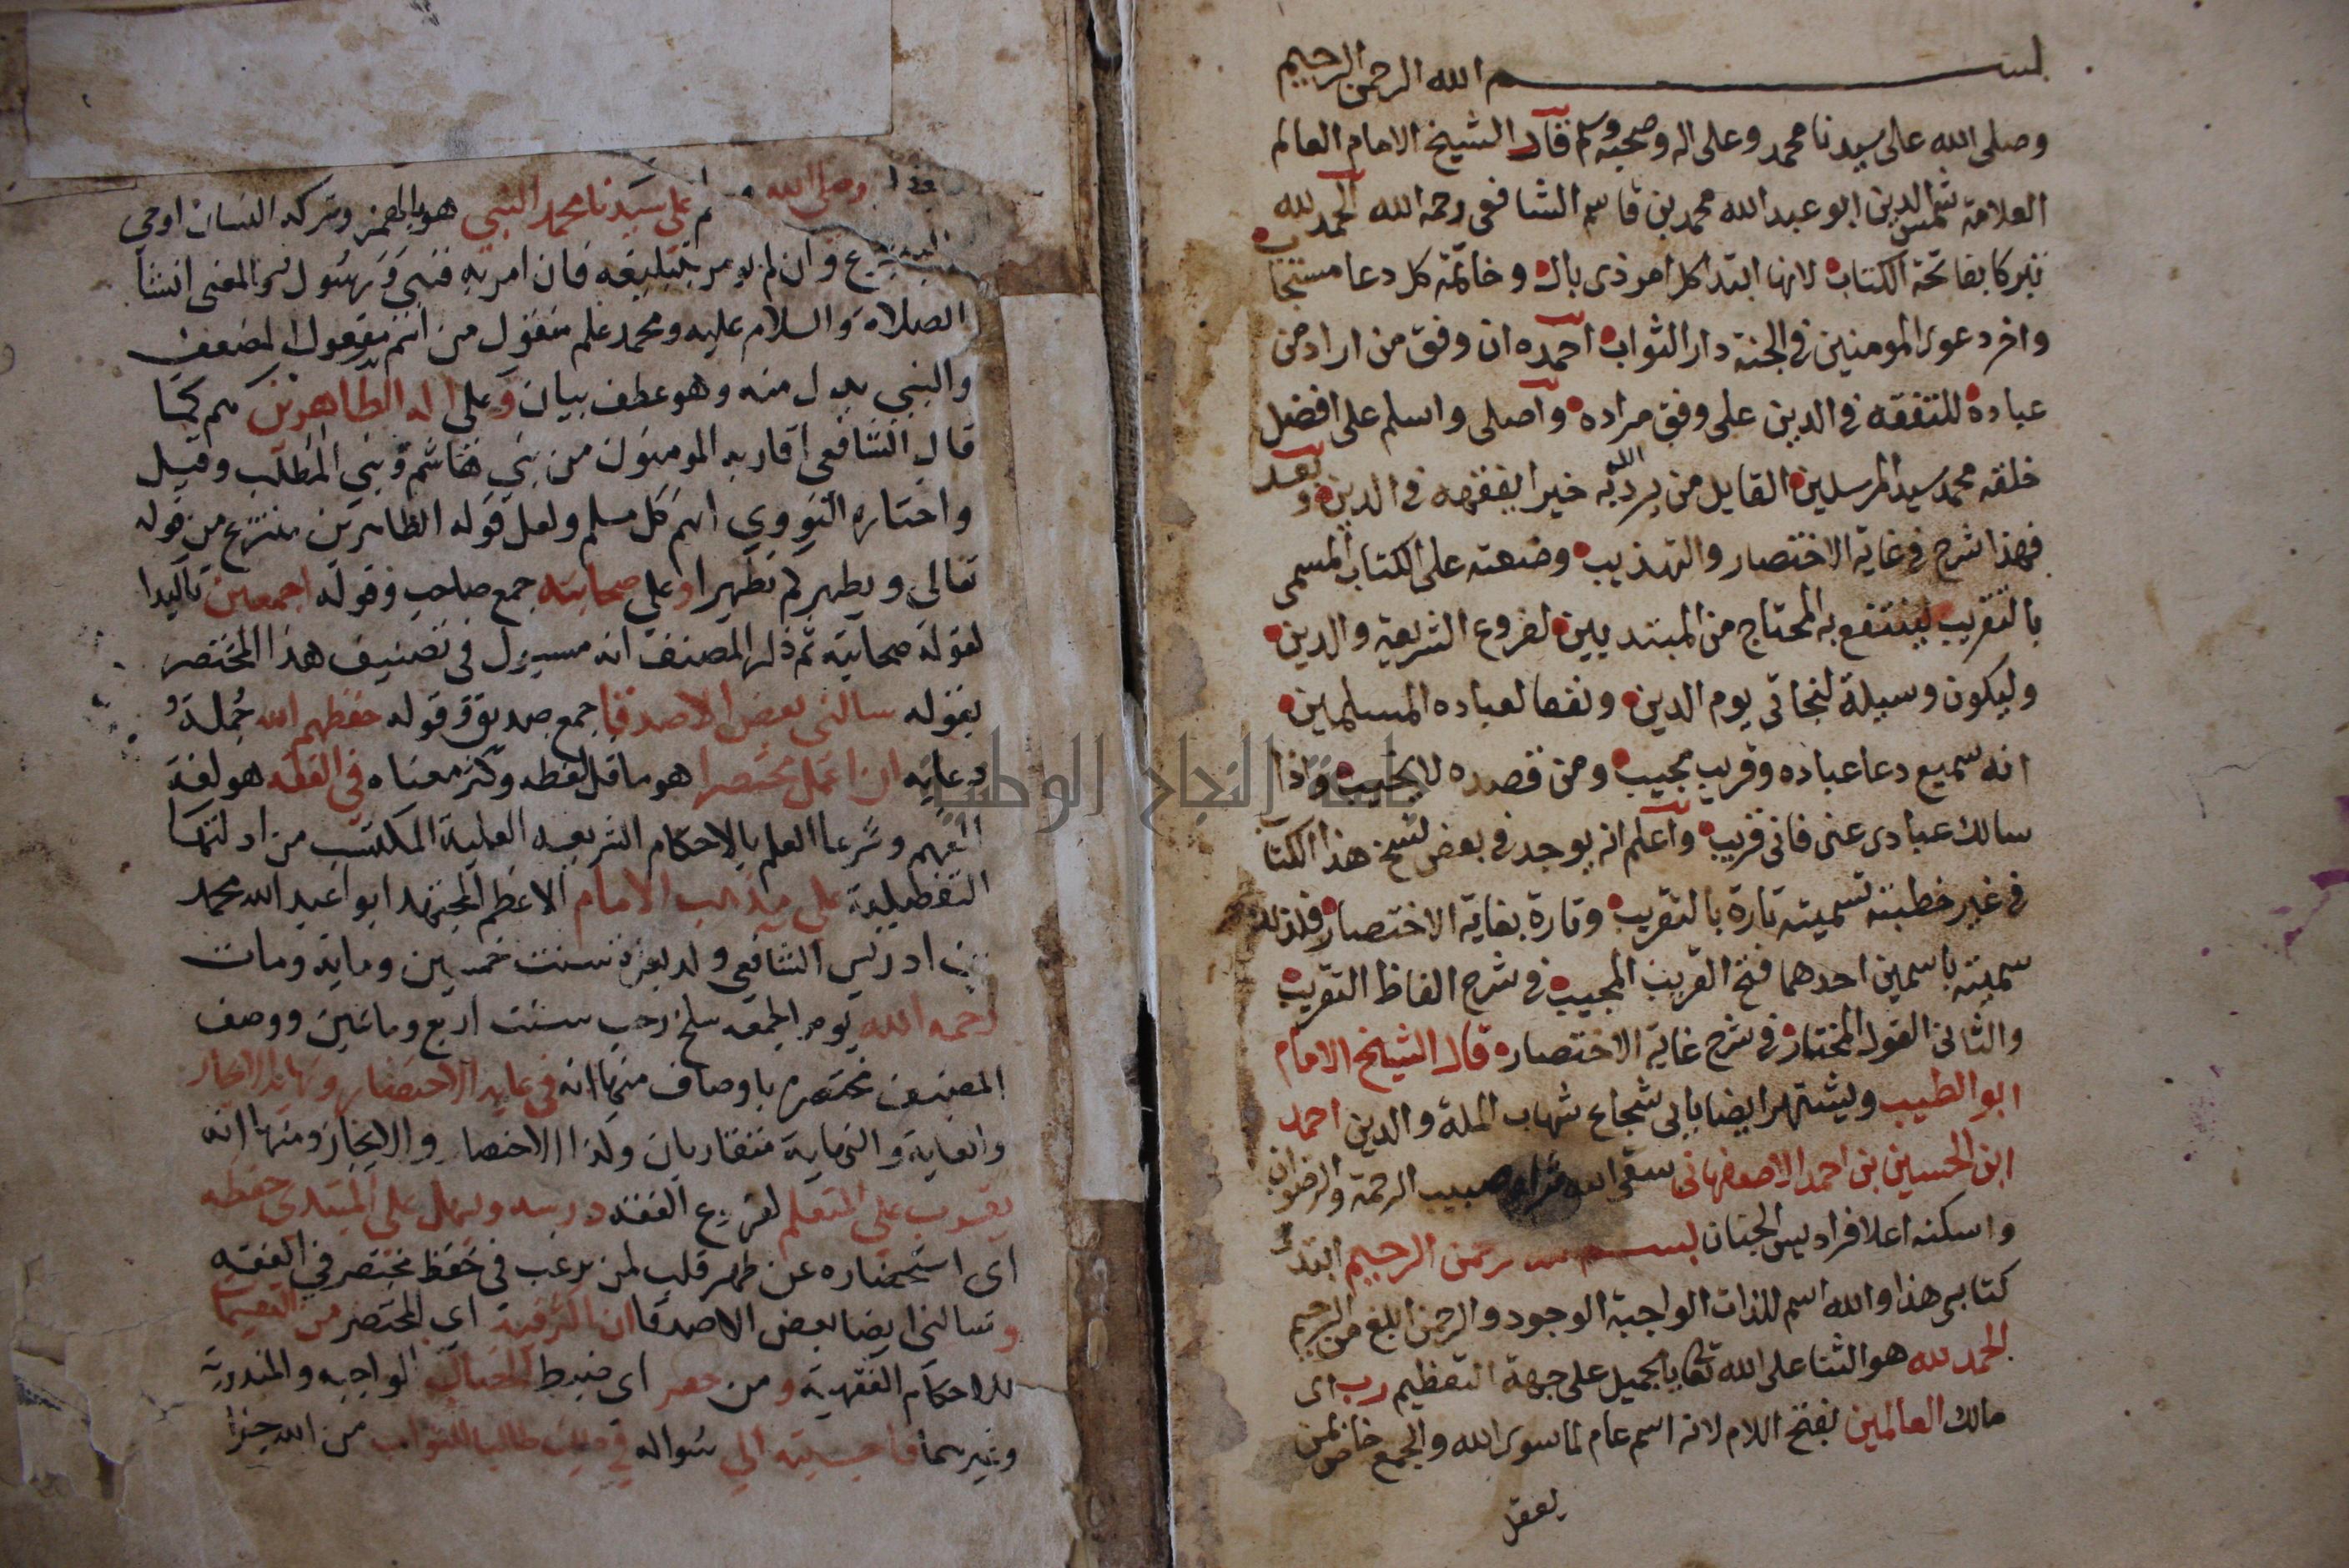 بسم الله الرحمن الرحيم
وصلى الله على سيدنا محمد وعلى اله وصحبه وسلم قال الشيخ الامام العالم
العلامة شمس الدين ابو عبد الله محمد بن قاسم الشافعى رحمه الله الحمد لله
تبركا بفاتحة الكتاب لانها ابتدا كل امر ذى بال وخاتمة كل دعا مستجاب
واخر دعوى المومنين في الجنة دار الثواب احمده ان وفق من اراد من
عباده للتفقه في الدين على وفق مراده واصلى واسلم على افضل
خلقه محمد سيد المرسلين القايل من يرد الله به خيرا يفقهه في الدين وبعد
فهذا شرح في غاية الاختصار والتهذيب وضعته على الكتاب المسمى
بالتقريب لينتفع به المحتاج من المبتديين لفروع الشريعة والدين
وليكون وسيلة لنجاتى يوم الدين ونفعا لعباده المسلمين
انه سميع دعا عباده وقريب مجيب ومن قصده لا يخيب واذا
سالك عبادى عنى فانى قريب واعلم انه يوجد في بعض نسخ هذا الكتا
في غير خطبته تسميته تارة بالتقريب وتارة بغاية الاختصار فلذلك
سميته باسمين احدهما فتح القريب المجيب في شرح الفاظ التقريب
والثانى القول المختار في شرح غاية الاختصار قال الشيخ الامام
ابو الطيب ويشتهر ايضا بابى شجاع شهاب الملة والدين احمد
ابن الحسين بن احمد الاصفهانى سقى الله ثراه صبيب الرحمة والرضوان
واسكنه اعلا فراديس الجنان بسم الرحمن الرحيم ابتدئ
كتابى هذا والله اسم للذات الواجبة الوجود والرحمن ابلغ من الرحيم
الحمد لله هو الثنا على الله تعالى بالجميل على جهة التعظيم رب اى
مالك العالمين بفتح اللام لانه اسم عام لما سوى الله والجمع خاص بمن
يعقل
وصلى الله على سيدنا محمد النبى هو بالهمز وتركه انسان اوحي
وان لم يومر بتبليغه فان امر به فنبي ورسول والمعنى انشا
الصلاه والسلام عليه ومحمد علم منقول من اسم مفعول المضعف
والنبي بدل منه وهو عطف بيان وعلى اله الطاهرين هم كما
قال الشافعى اقاربه المومنون من بني هاشم وبني المطلب وقيل
واختاره النووي انهم كل مسلم ولعل قوله الطاهرين منتزع من قوله
تعالى ويطهركم تطهيرا وعلى صحابته جمع صاحب وقوله اجمعين تاكيدا
لقوله صحابته ثم ذكر المصنف انه مسيول في تصنيف هذا المختصر
بقوله سالنى بعض الاصدقا جمع صديق وقوله حفظهم الله جملة
دعايه ان اعمل مختصرا هو ما قل لفظه وكثر معناه في الفقه هو لغة
الفهم وشرعا العلم بالاحكام الشرعيه العملية المكتسب من ادلتها
التفصيلية على مذهب الامام الاعظم المجتهد ابو عبد الله محمد
بن ادريس الشافعى ولد بغزة سنت خمسين ومايه ومات
رحمه الله يوم الجمعه سلخ رجب سنت اربع ومائتين ووصف
المصنف مختصره باوصاف منها انه في غاية الاختصار ونهاية الايجاز
والغاية والنهاية متقاربان وكذا الاختصار والايجاز ومنها انه
يقرب على المتعلم لفروع الفقه درسه ويسهل على المبتدى حفظه
اى استحضاره عن ظهر قلب لمن يرغب في حفظ مختصر في الفقه
وسالنى ايضا بعض الاصدقا ان اكثر فيه اي المختصر من التقسيمات
للاحكام الفقهية ومن حصر اى ضبط الخصال الواجبه والمندوبة
وغيرهما فاجبته الى سواله في ذلك طالبا للثواب من الله جزا
جامعة النجاح الوطنية